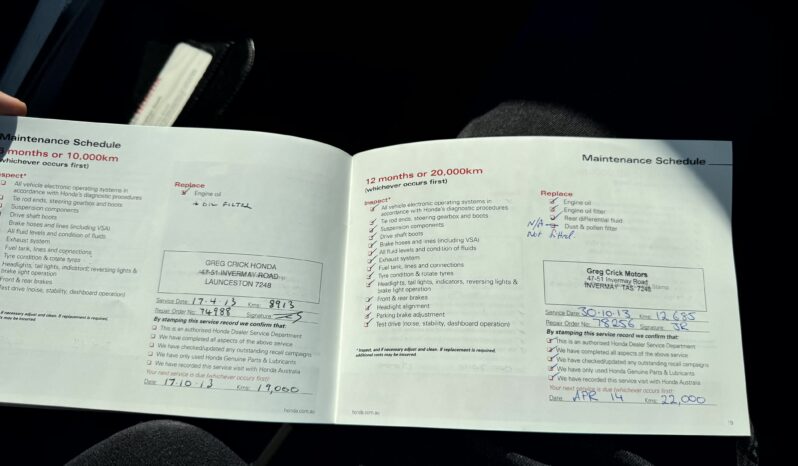 Maintenance Schedule
months or 10,000km
(whichever occurs first)
Inspect*
All vehicle electronic operating systems in
accordance with Honda's diagnostic procedures
Tie rod ends, steering gearbox and boots
Suspension components
Drive shaft boots
Brake hoses and lines (including VSA)
All fluid levels and condition of fluids
Exhaust system
Fuel tank, lines and connections
Tyre condition & rotate tyres
Headlights, tail lights, indicators, reversing lights &
brake light operation
Front & rear brakes
Test drive (noise, stability, dashboard operation)
Replace
Engine oil
FILTER
GREG CRICK HONDA
47-51 INVERMAY ROAD
LAUNCESTON 7248
Service Date 17.4.13 Kms: 8913
Repair Order No: 74988 Signature:
By stamping this service record we confirm that:
This is an authorised Honda Dealer Service Department
We have completed all aspects of the service
We have checked/updated any outstanding recall campaigns
We have only used Honda Genuine Parts & Lubricants
We have recorded this service visit with Honda Australia
Your next service is due (whichever occurs first):
Date 17.10.13 Kms: 19,000
honda.com.au
Maintenance Schedule
12 months or 20,000km
(whichever occurs first)
Inspect*
All vehicle electronic operating systems in
accordance with Honda's diagnostic procedures
Tie rod ends, steering gearbox and boots
Suspension components
Drive shaft boots
Brake hoses and lines (including VSA)
All fluid levels and condition of fluids
Exhaust system
Fuel tank, lines and connections
Tyre condition & rotate tyres
Headlights, tail lights, indicators, reversing lights &
brake light operation
Front & rear brakes
Headlight alignment
Parking brake adjustment
Test drive (noise, stability, dashboard operation)
* Inspect, and if necessary adjust and clean. If replacement is required,
additional costs may be incurred.
Replace
Engine oil
Engine oil filter
Rear differential fluid
N/A Dust & pollen filter
Not fitted
Greg Crick Motors
47-51 Invermay Road
INVERMAY TAS. 7248
Service Date: 30.10.13 Kms: 12685
Repair Order No: 78256 Signature: JR
By stamping this service record we confirm that:
This is an authorised Honda Dealer Service Department
We have completed all aspects of the above service
We have checked/updated any outstanding recall campaigns
We have only used Honda Genuine Parts & Lubricants
We have recorded this service visit with Honda Australia
Your next service is due (whichever occurs first):
Date APR 14 Kms: 22,000
honda.com.au